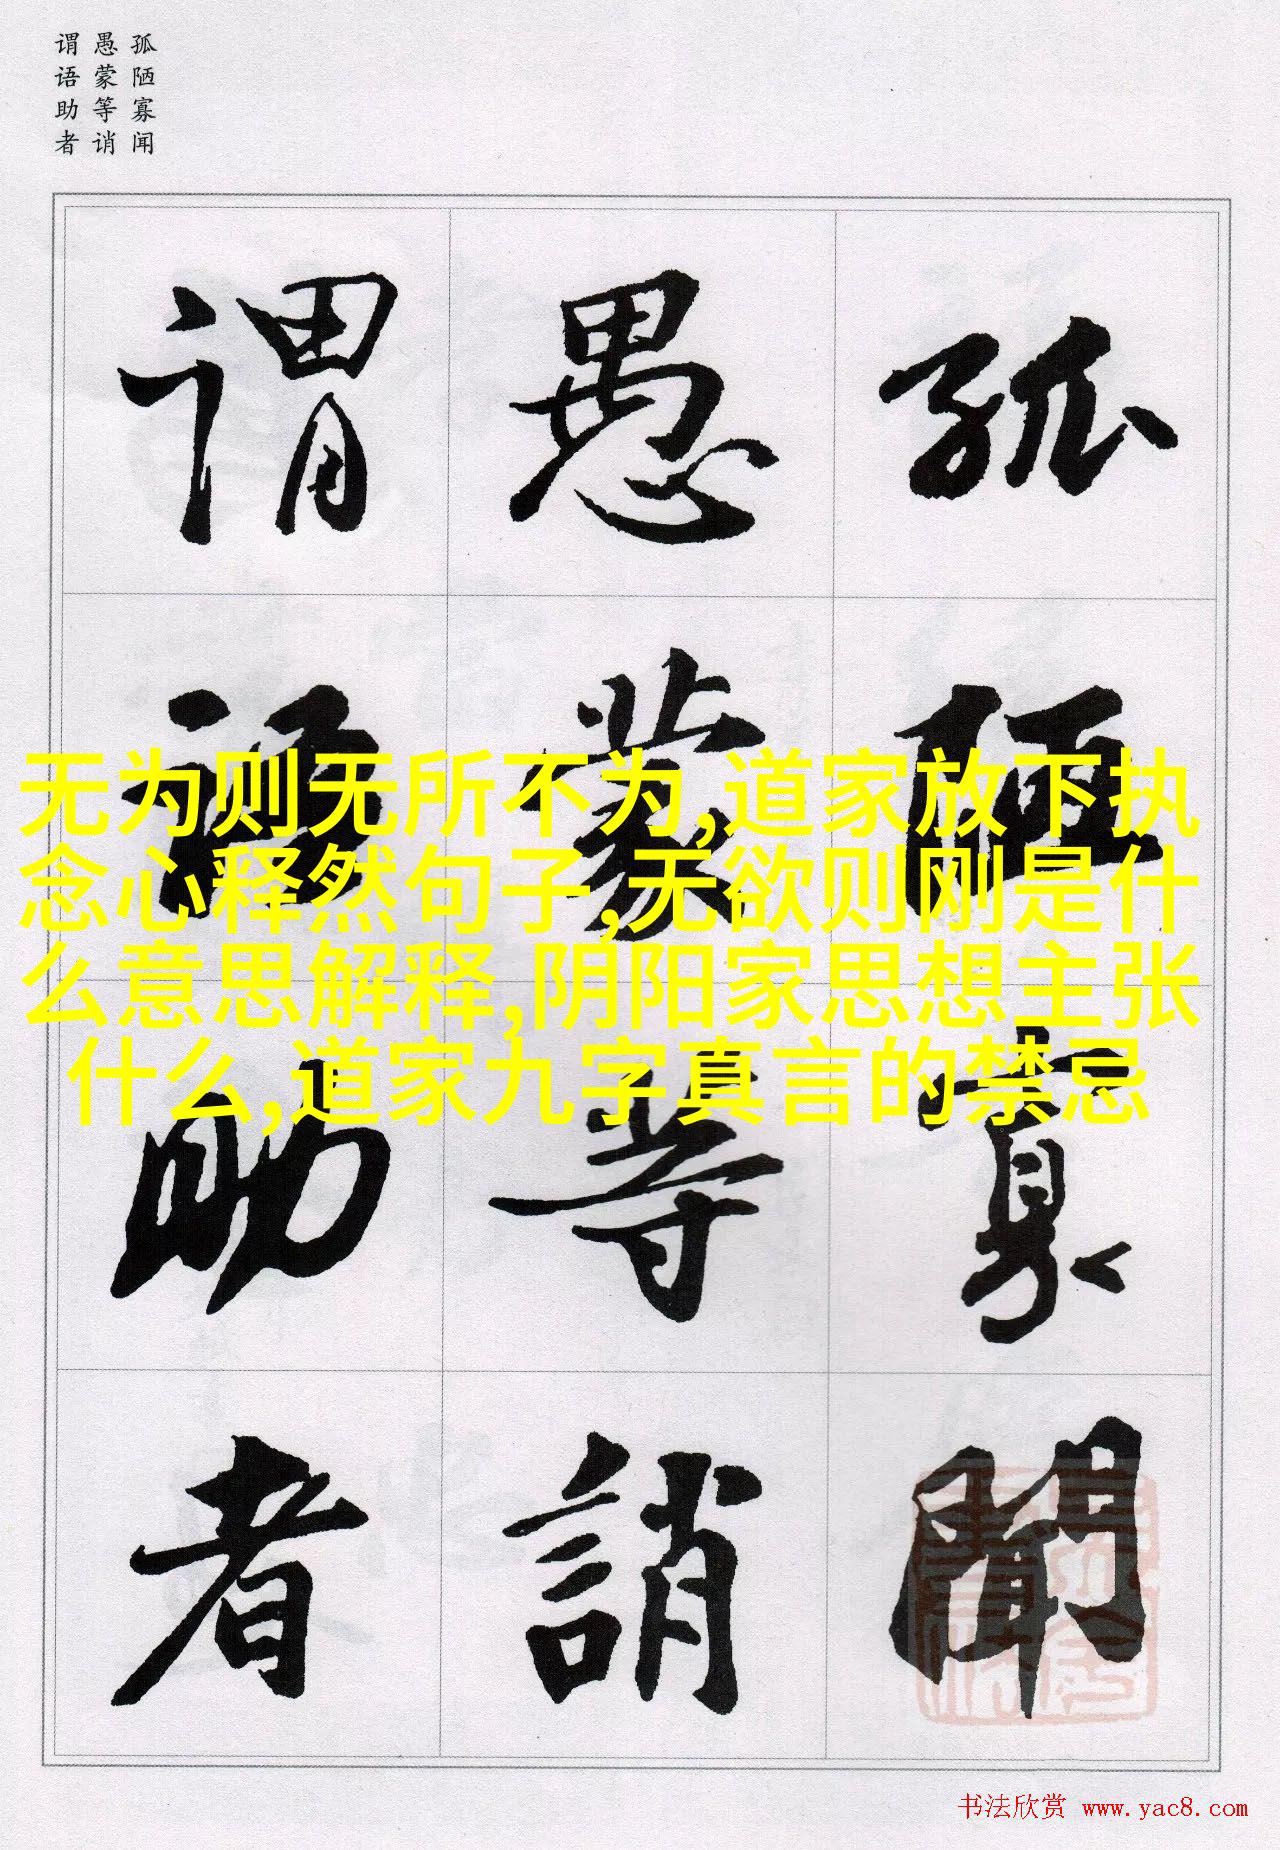 孤陋寡闻
愚蒙等诮
谓语助者
孤陋寡聞
愚蒙等誚
谓语助者
无为则无所不为,道家放下执
念心释然句子,无欲则刚是什
么意思解释,阴阳家思想主张
什么,道家九字真言的禁忌
书法欣赏 www.yac8.com